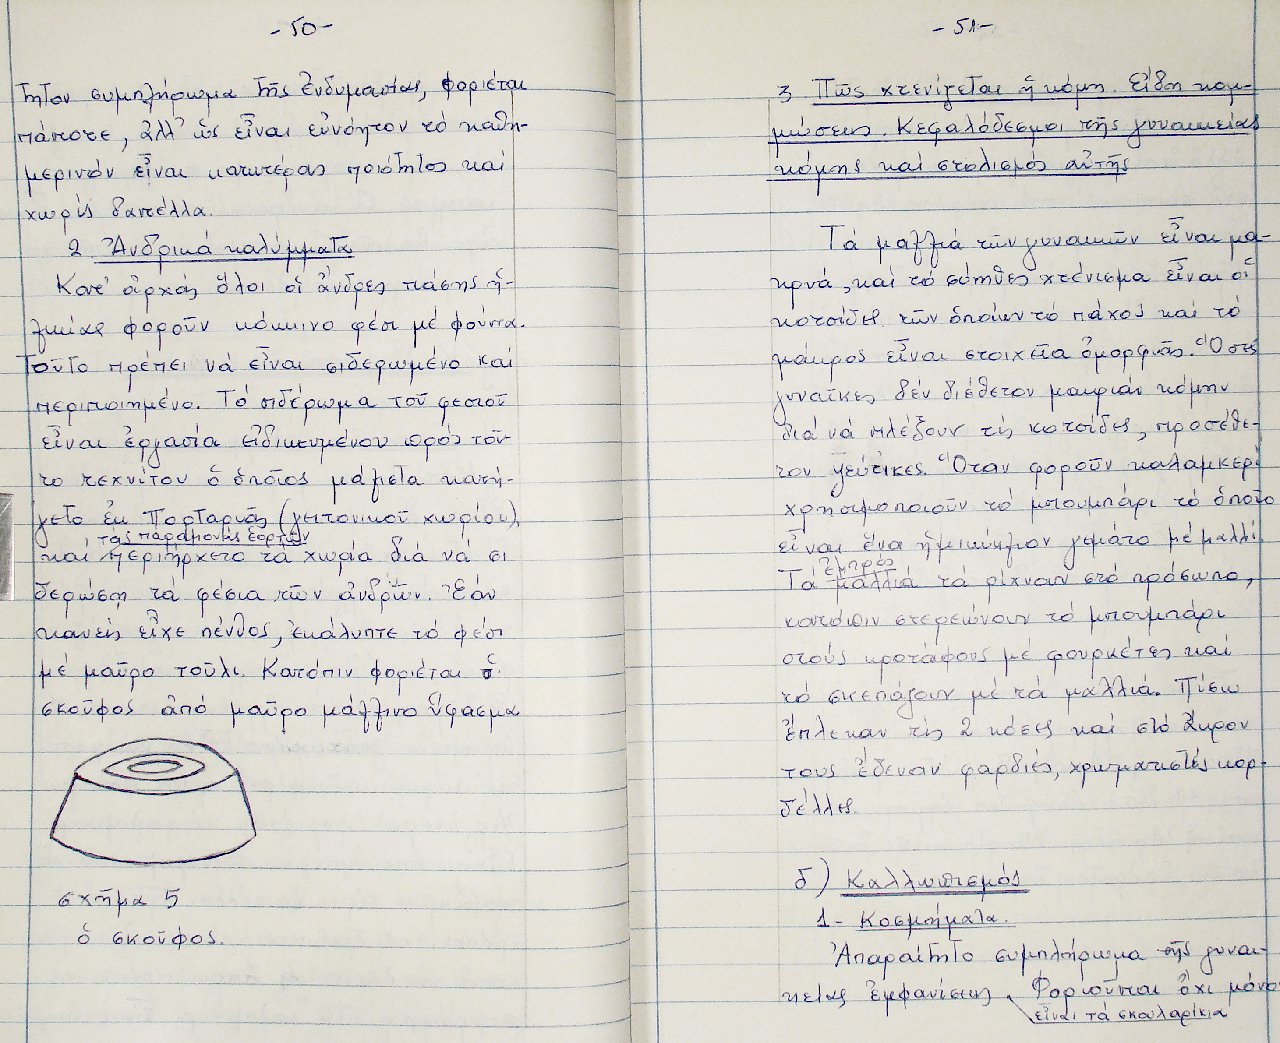 - 50 -
τητον συμπλήρωμα τῆς ἐνδυμασίας, φοριέται
πάποτε, ἀλλ' ὡς εἶναι εὐνόητον τό καθη-
μερινόν εἶναι κατωτέρας ποιότητος καί
χωρίς δαντέλλα.
2 Ἀνδρικά καλύμματα
Κατ' ἀρχάς ὅλοι οἱ ἄνδρες πάσης ἡ-
λικίας φοροῦν κόκκινο φέσι μέ φούντα.
Τοῦτο πρέπει νά εἶναι σιδερωμένο καί
περιποιημένο. Τό σιδέρωμα τοῦ φεσιοῦ
εἶναι ἐργασία εἰδικευμένου πρός τοῦ-
το τεχνίτου ὁ ὁποῖος μάλιστα κατή-
γετο ἐκ Πορταριᾶς (γειτονικοῦ χωρίου)
τάς παραμονάς ἑορτῶν
καί περιήρχετο τά χωρία διά νά σι
δερώσῃ τά φέσια τῶν ἀνδρῶν. Ἐάν
κανείς εἶχε πένθος, ἐκάλυπτε τό φέσι
μέ μαῦρο τοῦλι. Κατόπιν φοριέται ὁ
σκοῦφος ἀπό μαῦρο μάλλινο ὕφασμα
σχῆμα 5
ὁ σκοῦφος.
- 51 -
3 Πῶς χτενίζεται ἡ κόμη. Εἴδη κομ-
μώσεως. Κεφαλόδεσμοι τῆς γυναικείας
κόμης καί στολισμός αὐτῆς
Τά μαλλιά τῶν γυναικῶν εἶναι μα-
κρυά, καί τό σύνηθες χτένισμα εἶναι οἱ
κοτσίδες τῶν ὁποίων τό πάχος καί τό
μάκρος εἶναι στοιχεῖα ὀμορφιᾶς. Ὅσες
γυναῖκες δέν διέθετον μακριάν κόμην
διά νά πλέξουν τίς κοτσίδες, προσέθε-
τον ψεύτικες. Ὅταν φοροῦν καλαμκερί
χρησιμοποιοῦν τό μπουμπάρι τό ὁποῖο
εἶναι ἕνα ἡμικύκλιον γεμάτο μέ μαλλί.
ἐμπρός
Τά μαλλιά τά ρίχναν στό πρόσωπο,
κατόπιν στερεώνουν τό μπουμπάρι
στούς κροτάφους μέ φουρκέτες καί
τό σκεπάζουν μέ τά μαλλιά. Πίσω
ἔπλεκαν τίς 2 κόσες καί στό ἄκρον
τους ἔδεναν φαρδιές, χρωματιστές κορ-
δέλλες.
δ) Καλλωπισμός
1- Κοσμήματα.
Ἀπαραίτητο συμπλήρωμα τῆς γυναι-
κείας ἐμφανίσεως Φοριοῦνται ὄχι μόνο
εἶναι τά σκουλαρίκια